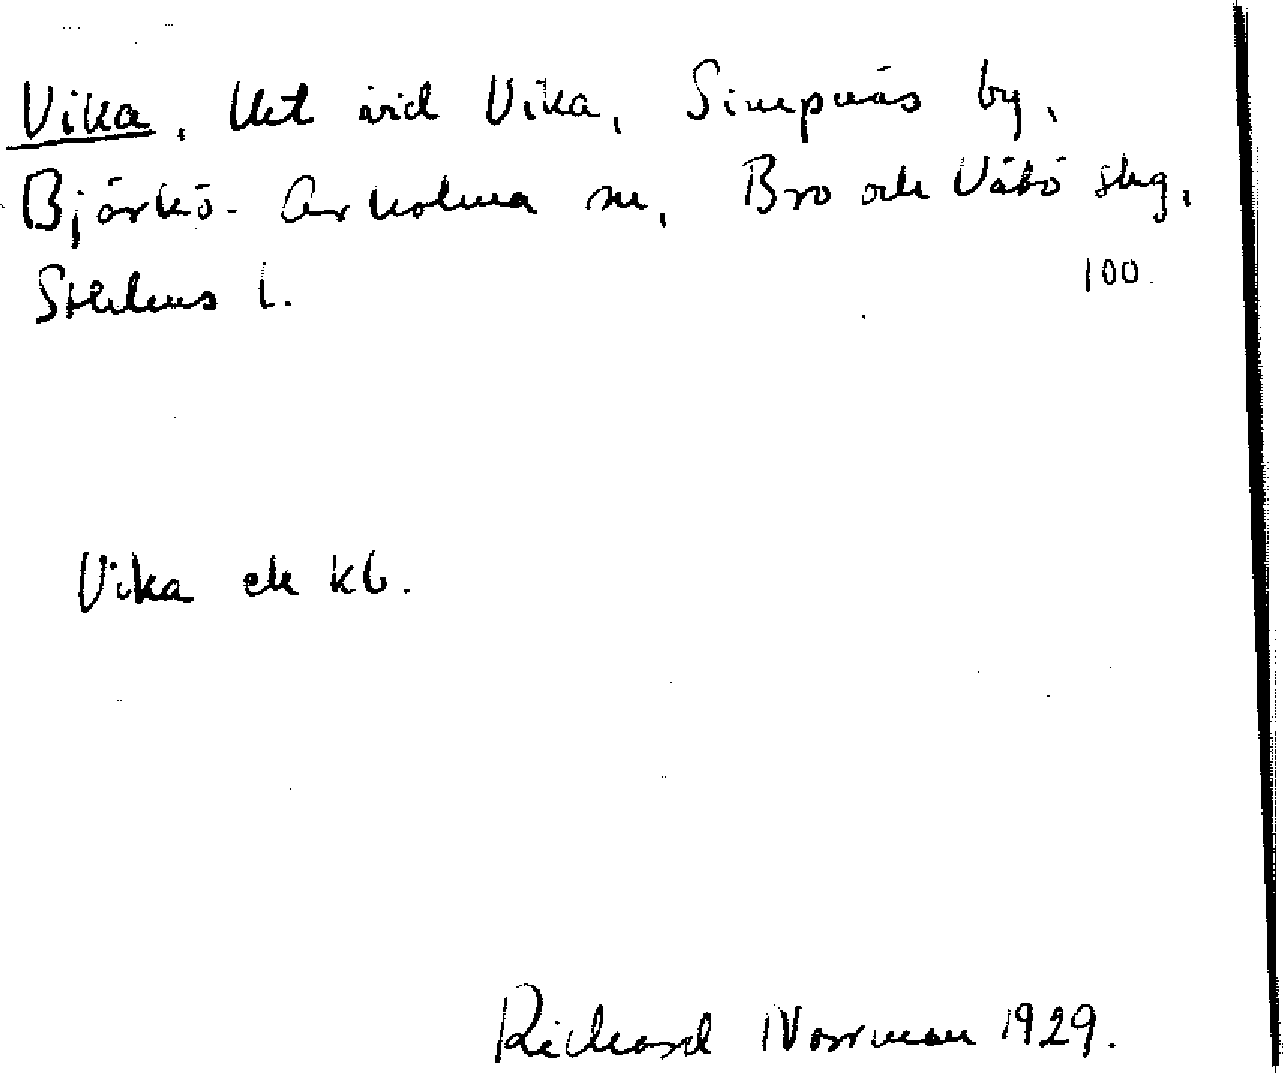 Vika. Ut vid Vika, Simpnäs by,
Björkö-Arholma sn, Bro och Vätö skg,
Sthlms l.
100.
Vika ek kb.
Richard Norrman 1929.